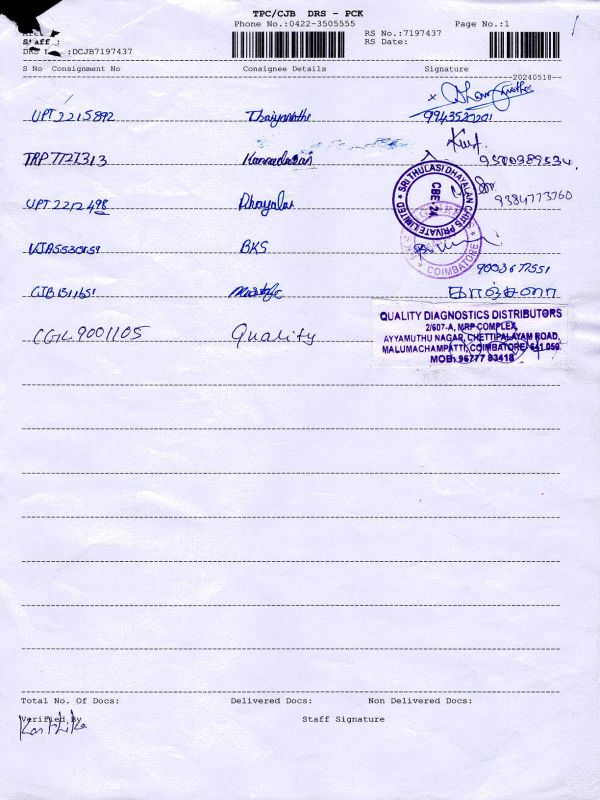 TPC/CJB DRS - PCK
Phone No.:0422-3505555 Page No.:1
RS No.:7197437
Staff :
RS Date:
:DCJB7197437
S No Consignment No Consignee Details Signature
20240518
UPT 2215892
9943520201
TRP 7727313 Kannadasan
SRI THULASI DHAYALAN CHITS PRIVATE LIMITED
CBE-24
9384773760
UPT 2212498 Dhayalan
COIMBATORE
BKS
9003677551
CJB 1511651
QUALITY DIAGNOSTICS DISTRIBUTORS
2/607-A, MRP COMPLEX,
AYYAMUTHU NAGAR, CHETTIPALAYAM ROAD,
MALUMACHAMPATTI, COIMBATORE, 641 050
MOB: 96777 83418
9001105 Quality
Total No. Of Docs: Delivered Docs: Non Delivered Docs:
Verified By Staff Signature
Karthika